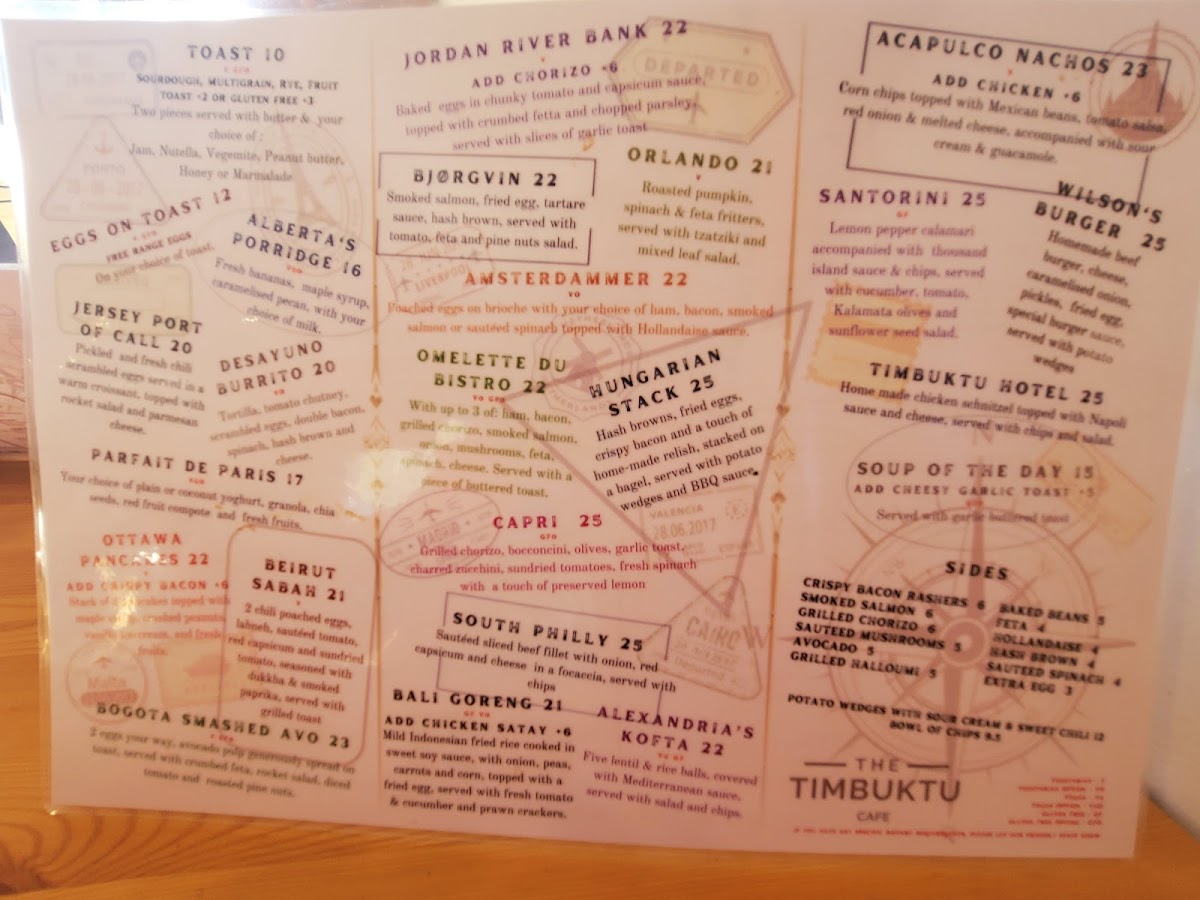 TOAST 10
SOURDOUGH, MULTIGRAIN, RYE, FRUIT
TOAST +2 OR GLUTEN FREE +3
Two pieces served with butter & your
choice of :
Jam, Nutella, Vegemite, Peanut butter,
Honey or Marmalade
EGGS ON TOAST 12
FREE RANGE EGGS
On your choice of toast.
ALBERTA'S
PORRIDGE 16
Fresh bananas, maple syrup,
caramelised pecan, with your
choice of milk.
JERSEY PORT
OF CALL 20
Pickled and fresh chili
scrambled eggs served in a
warm croissant, topped with
rocket salad and parmesan
cheese.
DESAYUNO
BURRITO 20
VO
Tortilla, tomato chutney,
scrambled eggs, double bacon,
spinach, hash brown and
cheese.
PARFAIT DE PARIS 17
Your choice of plain or coconut yoghurt, granola, chia
seeds, red fruit compote and fresh fruits.
OTTAWA
PANCAKES 22
V
ADD CRISPY BACON +6
Stack of pancakes topped with
maple syrup, crushed peanuts,
vanilla icecream, and fresh
fruits.
BEIRUT
SABAH 21
2 chili poached eggs,
labneh, sautéed tomato,
red capsicum and sundried
tomato, seasoned with
dukkha & smoked
paprika, served with
grilled toast
BOGOTA SMASHED AVO 23
2 eggs your way, avocado pulp generously spread on
toast, served with crumbed feta, rocket salad, diced
tomato and roasted pine nuts.
JORDAN RIVER BANK 22
V
ADD CHORIZO +6
Baked eggs in chunky tomato and capsicum sauce,
topped with crumbed fetta and chopped parsley,
served with slices of garlic toast
BJØRGVIN 22
Smoked salmon, fried egg, tartare
sauce, hash brown, served with
tomato, feta and pine nuts salad.
ORLANDO 21
V
Roasted pumpkin,
spinach & feta fritters,
served with tzatziki and
mixed leaf salad.
AMSTERDAMMER 22
VO
Poached eggs on brioche with your choice of ham, bacon, smoked
salmon or sautéed spinach topped with Hollandaise sauce.
OMELETTE DU
BISTRO 22
VO GFO
With up to 3 of: ham, bacon,
grilled chorizo, smoked salmon,
onion, mushrooms, feta,
spinach, cheese. Served with a
piece of buttered toast.
HUNGARIAN
STACK 25
Hash browns, fried eggs,
crispy bacon and a touch of
home-made relish, stacked on
a bagel, served with potato
wedges and BBQ sauce.
CAPRI 25
GFO
Grilled chorizo, bocconcini, olives, garlic toast,
charred zucchini, sundried tomatoes, fresh spinach
with a touch of preserved lemon
SOUTH PHILLY 25
Sautéed sliced beef fillet with onion, red
capsicum and cheese in a focaccia, served with
chips
BALI GORENG 21
GF VO
ADD CHICKEN SATAY +6
Mild Indonesian fried rice cooked in
sweet soy sauce, with onion, peas,
carrots and corn, topped with a
fried egg, served with fresh tomato
& cucumber and prawn crackers.
ALEXANDRIA'S
KOFTA 22
VG GF
Five lentil & rice balls, covered
with Mediterranean sauce,
served with salad and chips.
ACAPULCO NACHOS 23
V
ADD CHICKEN +6
Corn chips topped with Mexican beans, tomato salsa,
red onion & melted cheese, accompanied with sour
cream & guacamole.
SANTORINI 25
GF
Lemon pepper calamari
accompanied with thousand
island sauce & chips, served
with cucumber, tomato,
Kalamata olives and
sunflower seed salad.
WILSON'S
BURGER 25
Homemade beef
burger, cheese,
caramelised onion,
pickles, fried egg,
special burger sauce,
served with potato
wedges
TIMBUKTU HOTEL 25
Home made chicken schnitzel topped with Napoli
sauce and cheese, served with chips and salad.
SOUP OF THE DAY 15
ADD CHEESY GARLIC TOAST +5
Served with garlic buttered toast
SIDES
CRISPY BACON RASHERS 6
SMOKED SALMON 6
GRILLED CHORIZO 6
SAUTEED MUSHROOMS 5
AVOCADO 5
GRILLED HALLOUMI 5
BAKED BEANS 5
FETA 4
HOLLANDAISE 4
HASH BROWN 4
SAUTEED SPINACH 4
EXTRA EGG 3
POTATO WEDGES WITH SOUR CREAM & SWEET CHILI 12
BOWL OF CHIPS 9.5
THE
TIMBUKTU
CAFE
DEPARTED
PORTO
28-06-2017
LIVERPOOL
MADRID
VALENCIA
28.06.2017
CAIRO
Departed
Malta